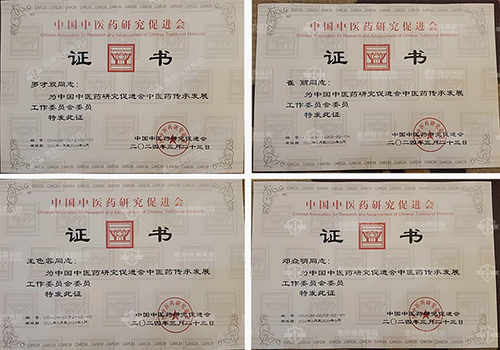 中国中医药研究促进会
Chinese Association for Research and Advancement of Chinese Traditional Medicine
证 书
罗才双同志:
为中国中医药研究促进会中医药传承发展
工作委员会委员
特发此证
中国中医药研究促进会
二〇二四年三月二十三日
中国中医药研究促进会
Chinese Association for Research and Advancement of Chinese Traditional Medicine
证 书
崔 丽同志:
为中国中医药研究促进会中医药传承发展
工作委员会委员
特发此证
中国中医药研究促进会
二〇二四年三月二十三日
中国中医药研究促进会
Chinese Association for Research and Advancement of Chinese Traditional Medicine
证 书
王色蓉同志:
为中国中医药研究促进会中医药传承发展
工作委员会委员
特发此证
中国中医药研究促进会
二〇二四年三月二十三日
中国中医药研究促进会
Chinese Association for Research and Advancement of Chinese Traditional Medicine
证 书
邓焱明同志:
为中国中医药研究促进会中医药传承发展
工作委员会委员
特发此证
中国中医药研究促进会
二〇二四年三月二十三日